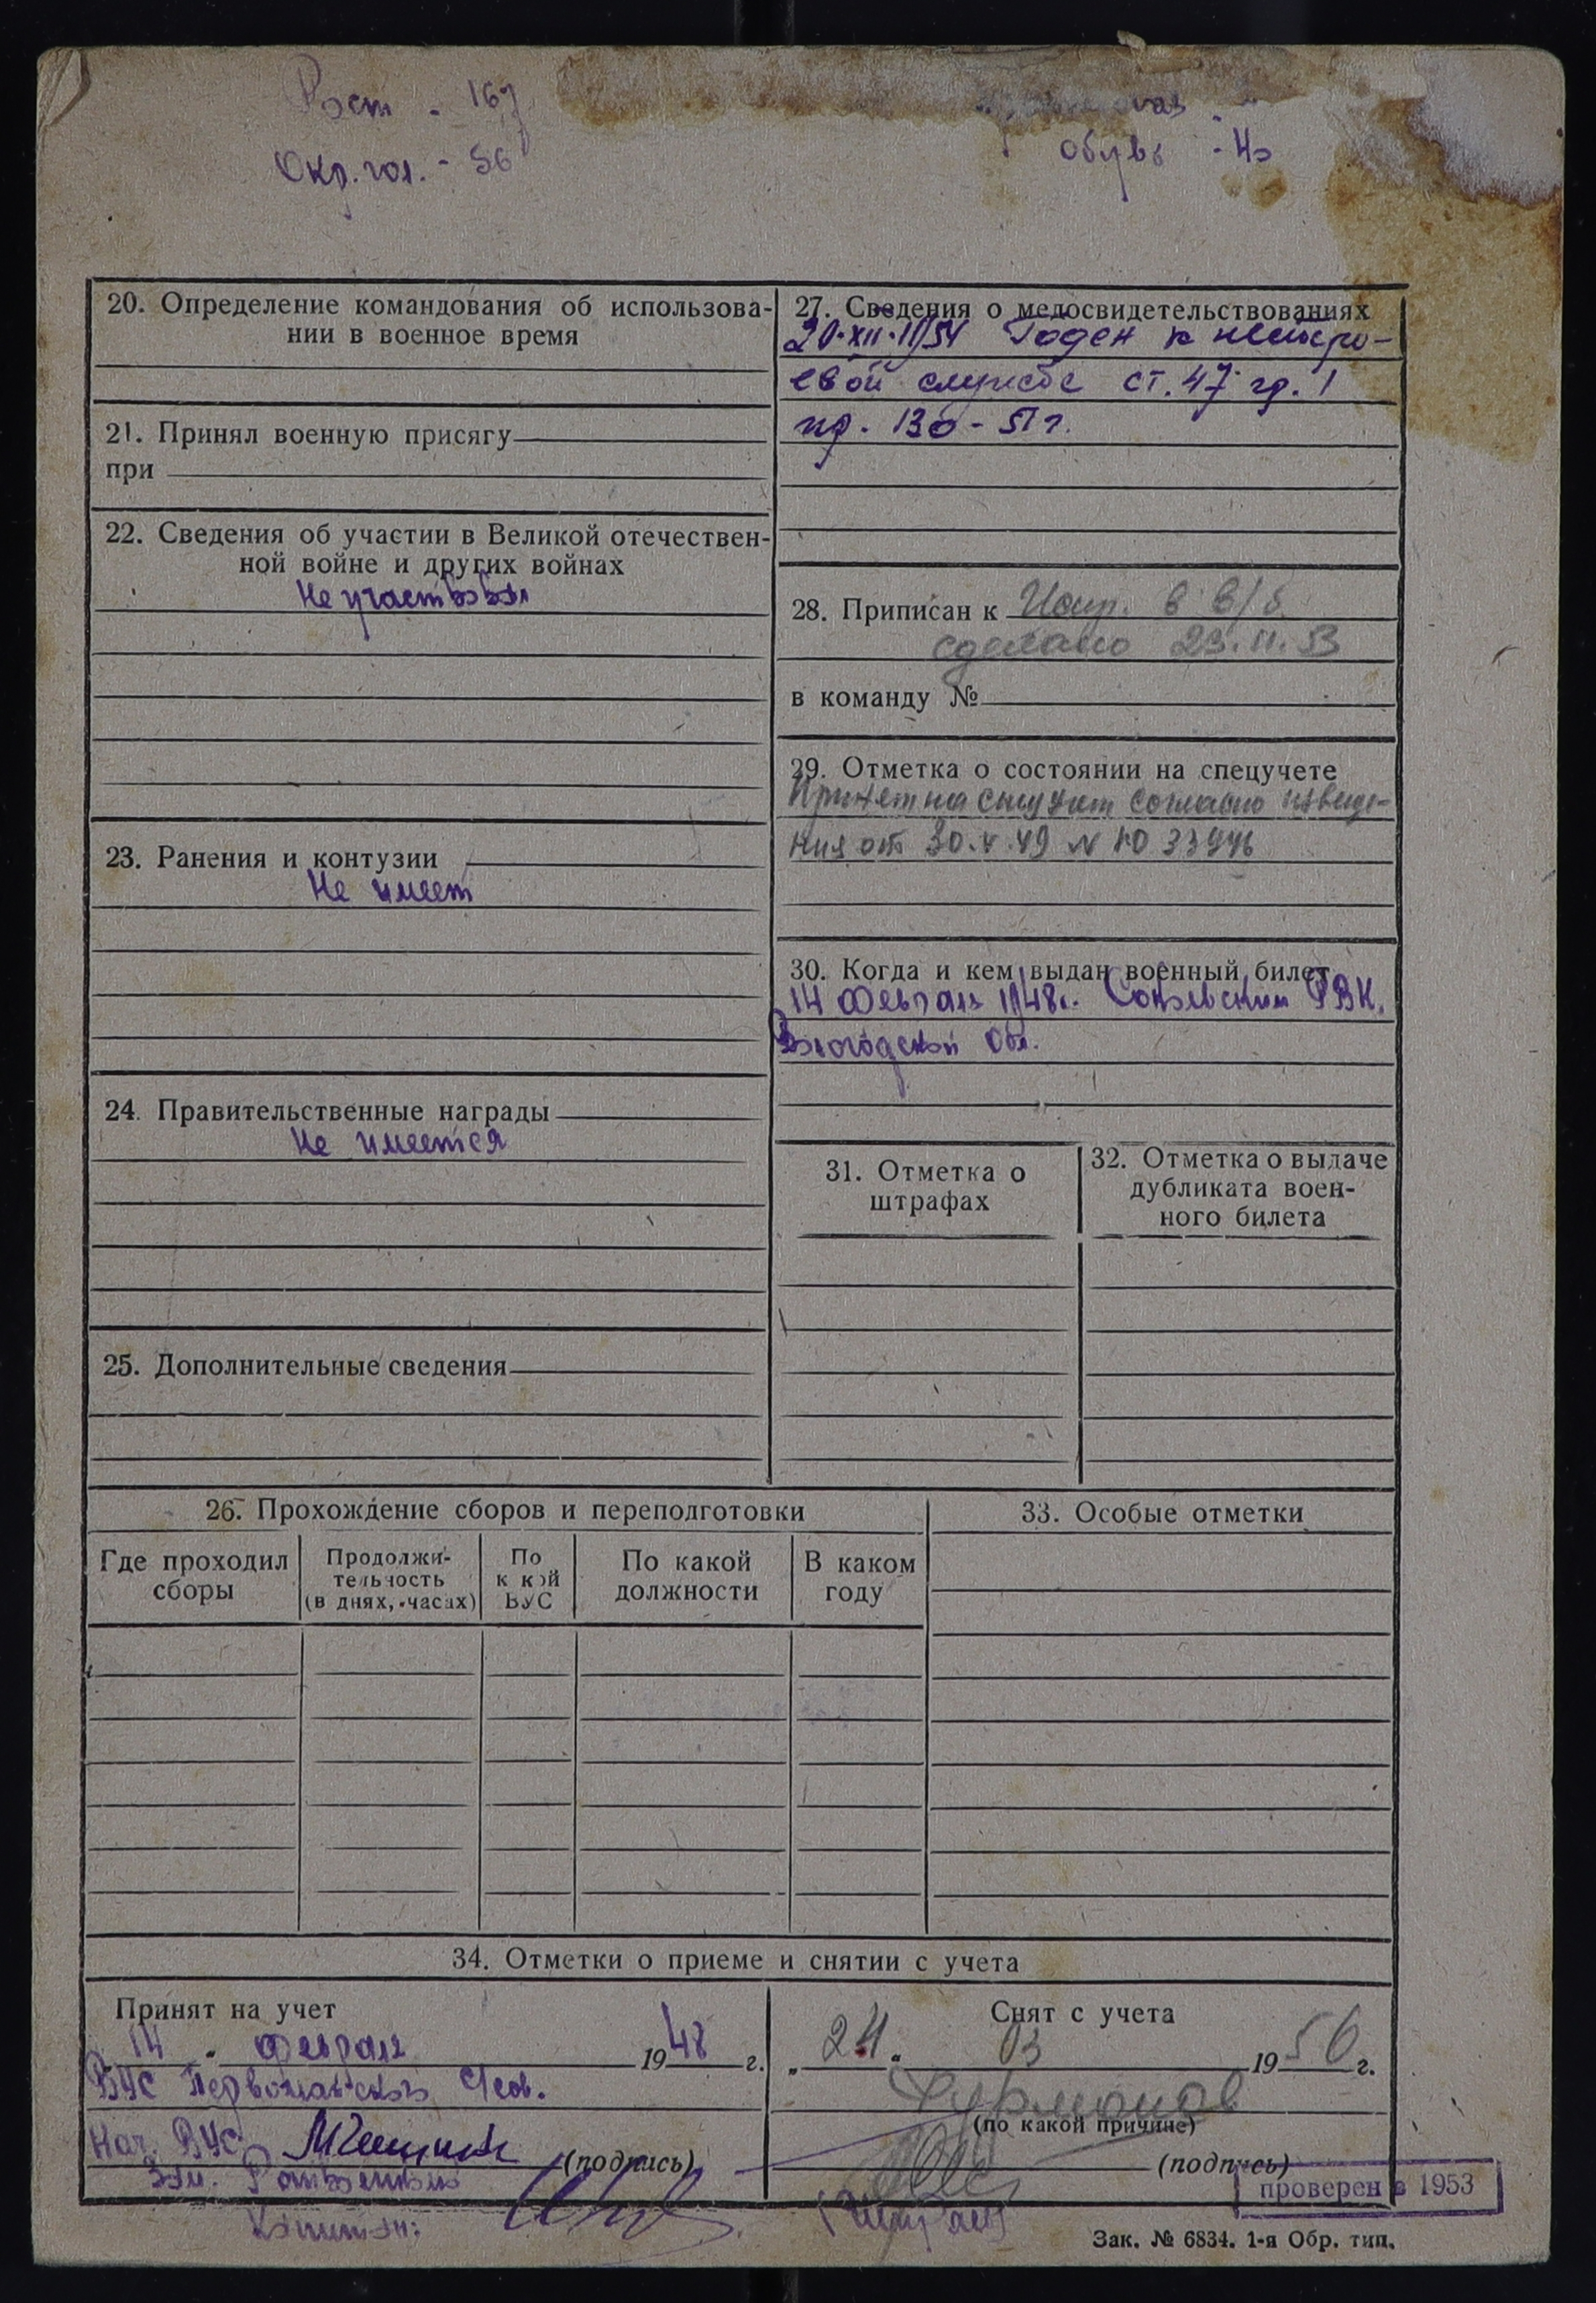 Рост - 167
Окр. гол. - 56
обувь - 40
20. Определение командования об использова-
нии в военное время
21. Принял военную присягу
при
22. Сведения об участии в Великой отечествен-
ной войне и других войнах
Не участвовал
23. Ранения и контузии
Не имеет
24. Правительственные награды
Не имеется
25. Дополнительные сведения
27. Сведения о медосвидетельствованиях
Годен к нестро-
евой службе ст. 47 гр. 1
пр. 130 - 51 г.
28. Приписан к
сделано 23.11.53
в команду №
29. Отметка о состоянии на спецучете
Принят на спецучет согласно извеще-
ния от 30.V.49 N
30. Когда и кем выдан военный билет
14 февраля 1948г. Сокольским РВК,
Вологодской обл.
31. Отметка о
штрафах
32. Отметка о выдаче
дубликата воен-
ного билета
26. Прохождение сборов и переподготовки
Где проходил
сборы
Продолжи-
тельность
(в днях, часах)
По
к кой
ВУС
По какой
должности
В каком
году
33. Особые отметки
34. Отметки о приеме и снятии с учета
Принят на учет
14 " февраля 1948 г.
ВУС Первомайского
Нач. ВУС
(подпись)
Капитан:
Снят с учета
„ 24 " 03 1956 г.
(по какой причине)
(подпись)
проверен в 1953
Зак. № 6834. 1-я Обр. тип.